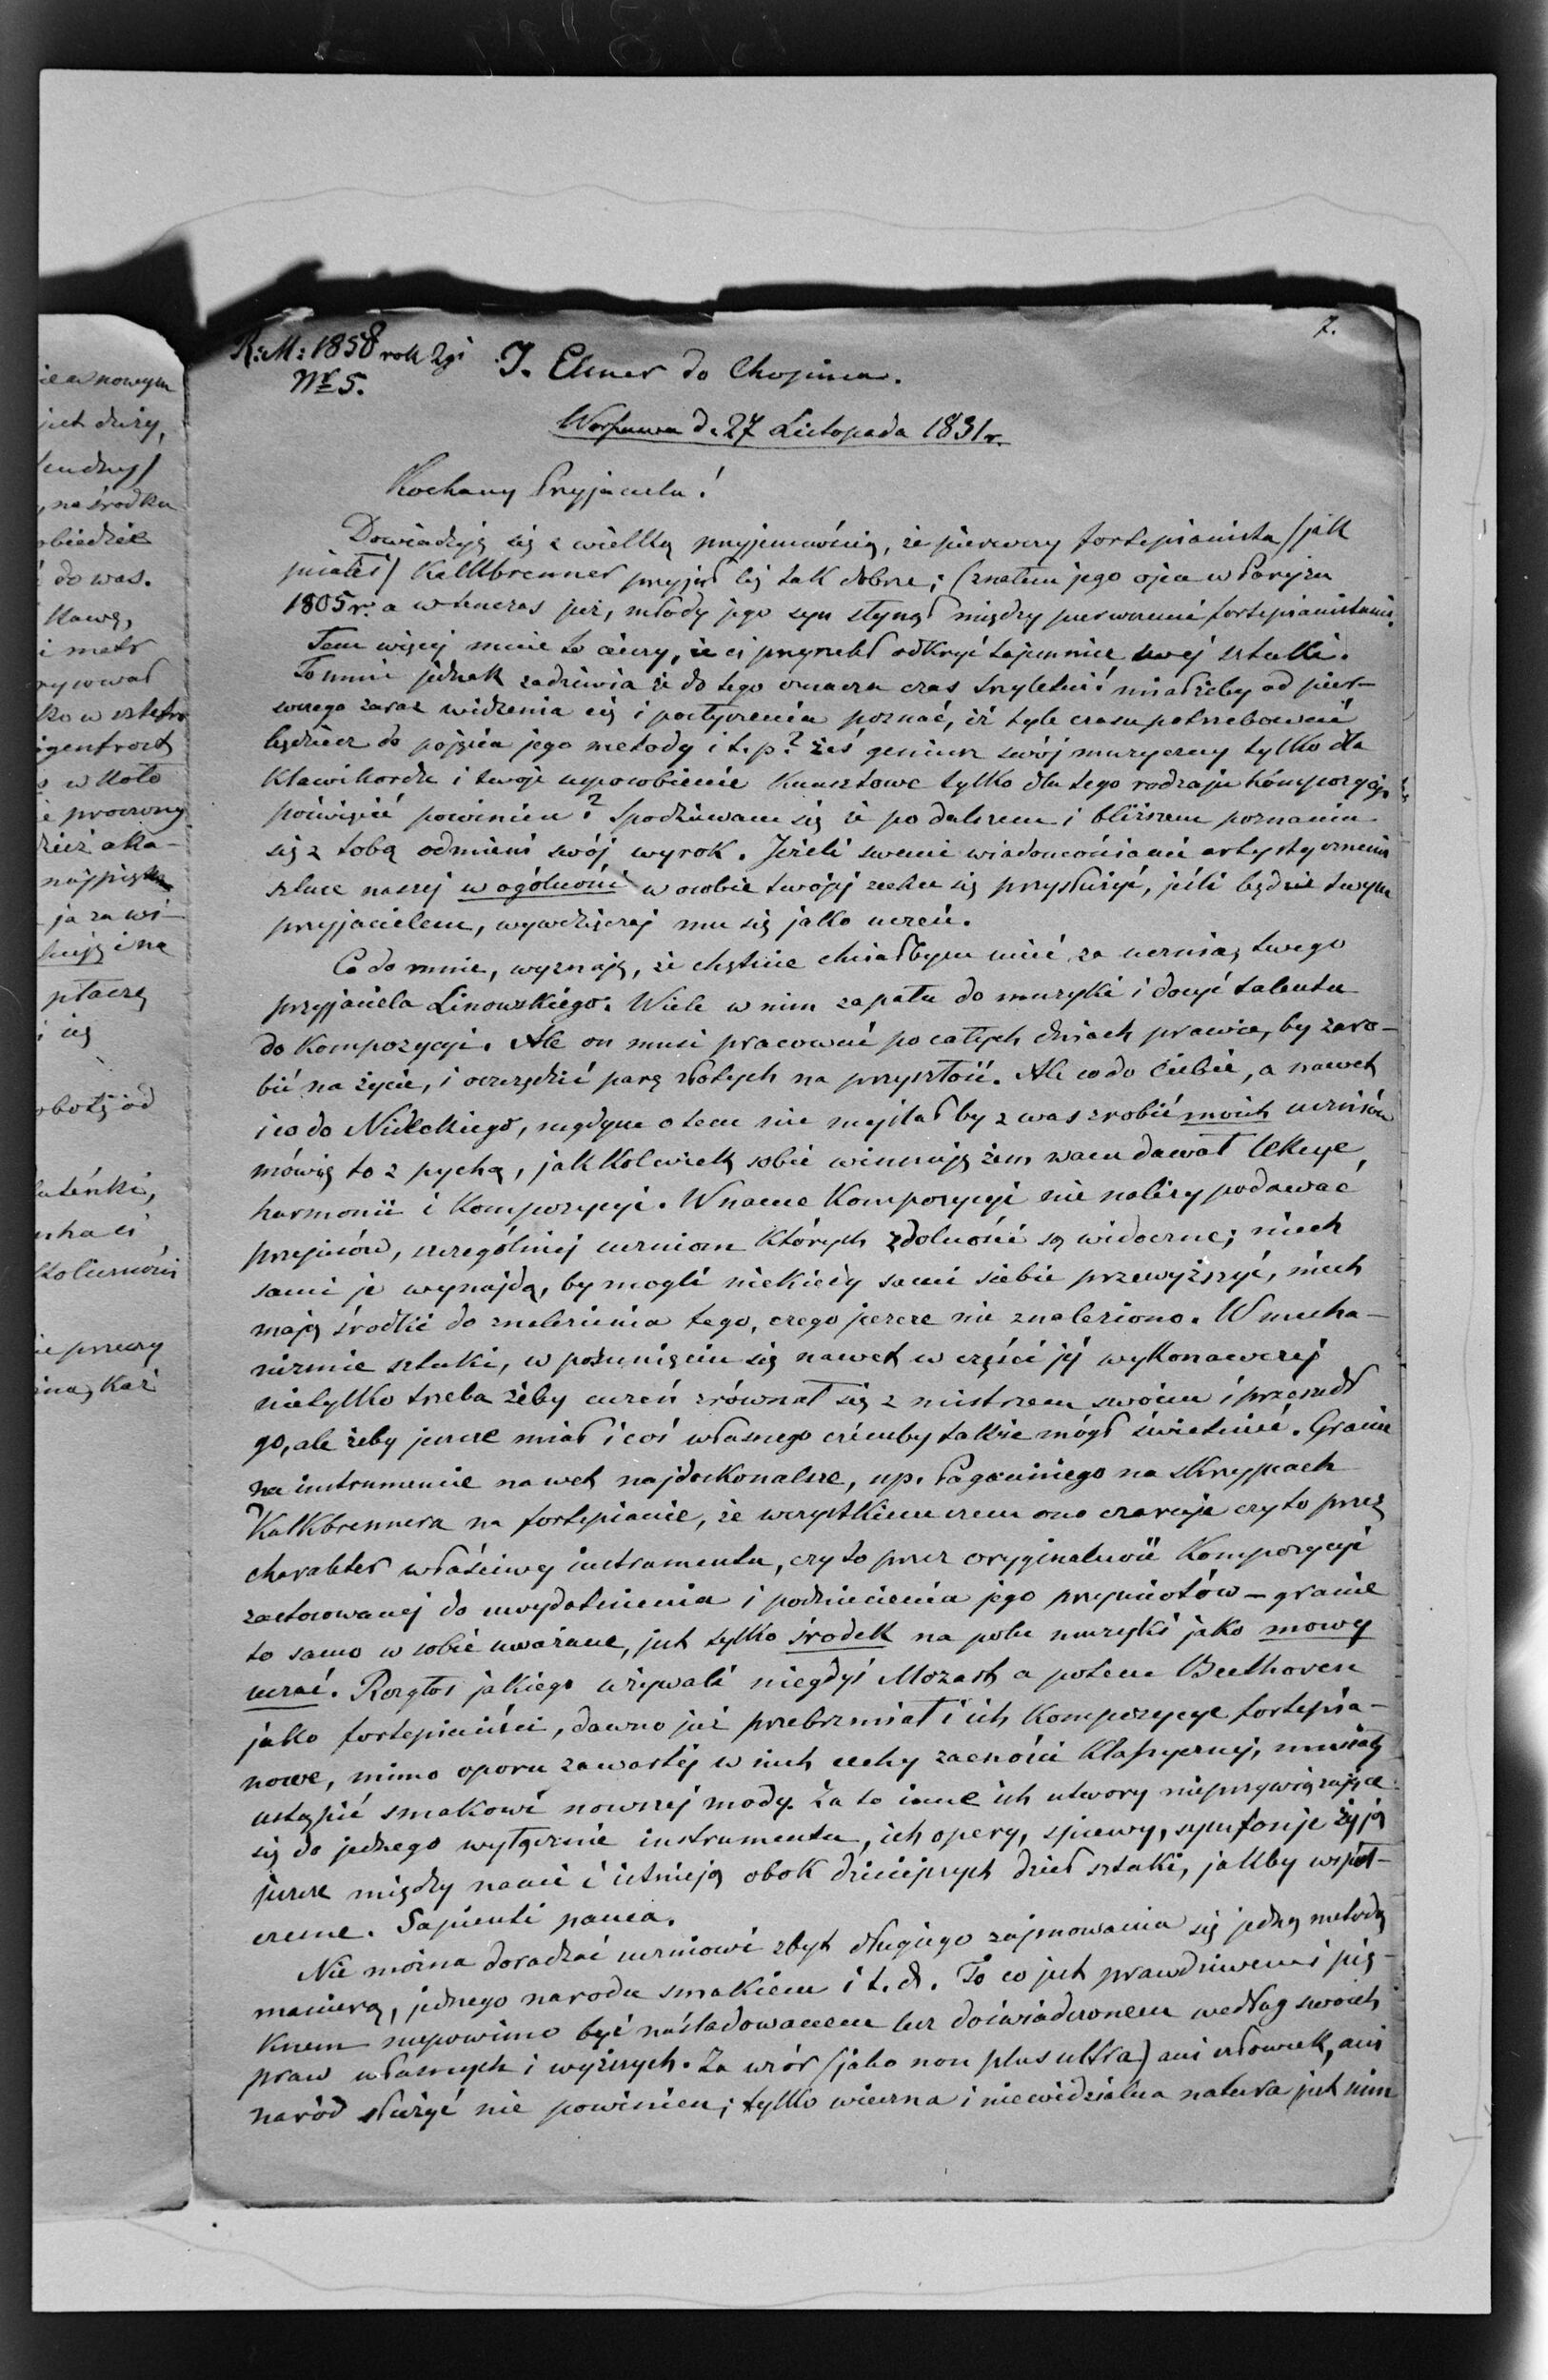 7.
R: M: 1858 rok 2gi
Nr 5.
J. Elsner do Chopina.
Warszawa d. 27 Listopada 1831 r.
Kochany Przyjacielu!
Dowiaduję się z wielką przyjemnością, że pierwszy fortepianista /jak
piszesz/ Kalkbrenner przyjął Cię tak dobrze; (znałem jego ojca w Paryżu
1805 r. a wtenczas już, młody jego syn słynął między pierwszemi fortepianistami.
Tem więcej mnie to cieszy, że ci przyrzekł odkryć tajemnice swej sztuki.
To mnie jednak zadziwia że do tego oznacza czas trzyletni! miałżeby od pier-
wszego zaraz widzenia cię i posłyszenia poznać, iż tyle czasu potrzebować
będziesz do pojęcia jego metody i t. p? żeś geniusz swój muzyczny tylko dla
Klawikordu i twoje usposobienie Kunsztowe tylko dla tego rodzaju kompozycji
poświęcić powinien? Spodziewam się że po dalszem i bliższem poznaniu
się z tobą odmieni swój wyrok. Jeżeli swemi wiadomościami artystycznemi
sztuce naszej w ogólności w osobie twojéj zechce się przysłużyć, jeśli będzie twym
przyjacielem, wywdzięczaj mu się jako uczeń.
Co do mnie, wyznaję, że chętnie chciałbym mieć za ucznia, twego
przyjaciela Linowskiego. Wiele w nim zapału do muzyki i dosyć talentu
do Kompozycji. Ale on musi pracować po całych dniach prawie, by zaro-
bić na życie, i oszczędzić parę złotych na przyszłość. Ale co do Ciebie, a nawet
i co do Nideckiego, nigdym o tem nie myślał by z was zrobić moich uczniów
mówię to z pychą, jakkolwiek sobie winszuję żem wam dawał lekcye
harmonii i Kompozycyi. W nauce Kompozycyi nie należy podawać
przepisów, szczególniej uczniom których zdolności są widoczne; niech
sami je wynajdą, by mogli niekiedy sami siebie przewyższyć, niech
mają środki do znalezienia tego, czego jeszcze nie znaleziono. W mecha-
nizmie sztuki, w posunięciu się nawet w części jéj wykonawczej
nietylko trzeba żeby uczeń zrównał się z mistrzem swoim i przeszedł
go, ale żeby jeszcze miał i coś własnego czémby także mógł świetnieć. Granie
na instrumencie nawet najdoskonalsze, np. Paganiniego na skrzypcach
Kalkbrennera na fortepianie, ze wszystkiem czem ono czaruje czy to przez
charakter właściwy instrumentu, czy to przez oryginalność Kompozycyi
zastosowanej do uwydatnienia i podniecienia jego przymiotów – granie
to samo w sobie uważane, jest tylko środek na polu muzyki jako mowy
uczuć. Rozgłos jakiego używali niegdyś Mozart a potem Beethoven
jako fortepianiści, dawno już przebrzmiał i ich Kompozycye fortepia-
nowe, mimo oporu zawartéj w nich cechy zacności Klassycznej, musiały
ustąpić smakowi nowszej mody. Za to inne ich utwory nieprzywiązujące
się do jednego wyłącznie instrumentu, ich opery, spiewy, symfonije żyją
jeszcze między nami i istnieją obok dzisiejszych dzieł sztuki, jakby współ-
czesne. Sapienti pauca.
Nie można doradzać uczniowi zbyt długiego zajmowania się jedną metodą
manierą, jednego narodu smakiem i t. d. To co jest prawdziwem i pię-
knem niepowinno być naśladowanem lecz doświadczonem według swoich
praw własnych i wyższych. Za wzór (jako non plus ultra) ani człowiek, ani
naród służyć nie powinien; tylko wieczna i niewidzialna natura jest nim
ie w nowym
jest duży,
, na środku
obiedzie
do was.
Kawę,
i metr
rysował
w Koło
dzież aka-
ja za wi-
i na
płaczę
cię